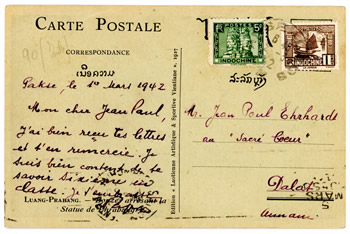 CARTE POSTALE
CORRESPONDANCE
Pakse le 1er Mars 1942
Mon cher Jean Paul,
J'ai bien reçu tes lettres
et t'en remercie. Je
suis bien content de te
savoir Sixième en
classe. Je t'embrasse
LUANG-PRABANG.
Statue de
Edition « Laotienne Artistique & Sportive Vientiane », 1927
5c
INDOCHINE
1
INDOCHINE
Mr. Jean Paul Ehrhards
au "Sacré Coeur"
Dalat
Annam
MARS